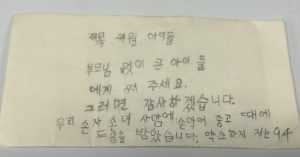 제목 겨울 아이들
부모님 없이 큰 아이들
에게 써 주세요.
그러면 감사하겠습니다.
우리 손자 소녀 사람에 손악이 중고 때에
도움을 받았습니다. 약소하지 저는 94